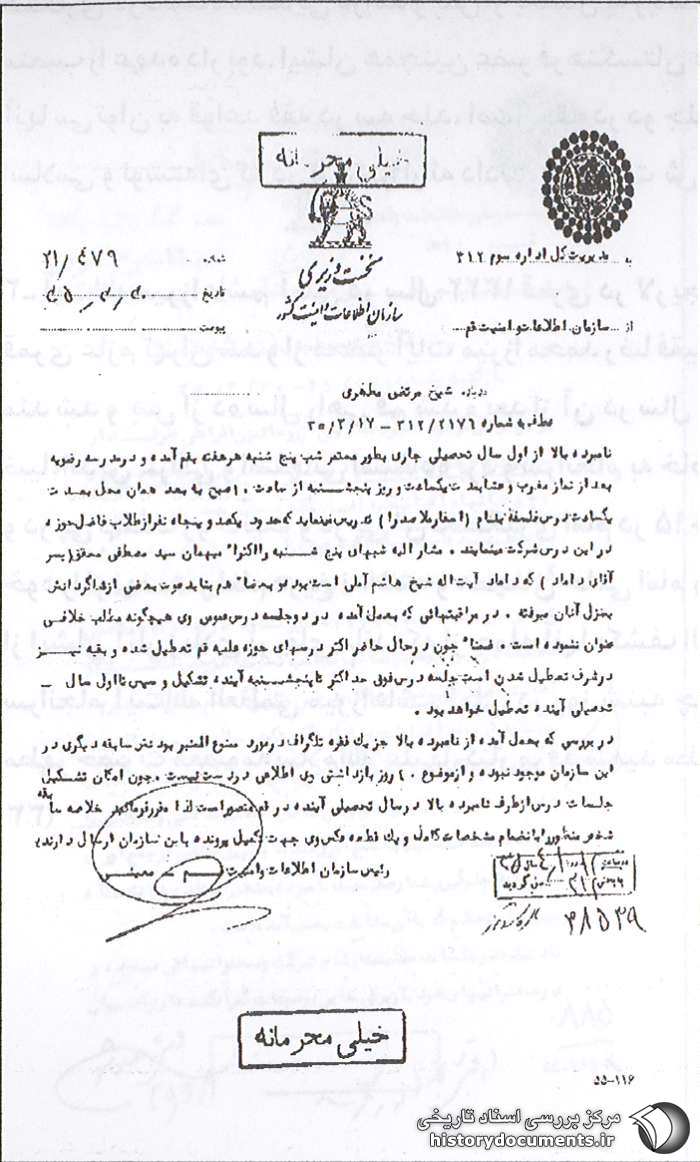 خیلی محرمانه
نخست وزیری
سازمان اطلاعات و امنیت کشور
به مدیریت کل اداره سوم ۳۱۲
شماره ۲۱/۴۷۹
تاریخ
از سازمان اطلاعات و امنیت قم
پیوست
درباره شیخ مرتضی مطهری
عطف به شماره ۳۱۲/۲۱۷۶ – ۳۵/۳/۱۷
نامبرده بالا از اول سال تحصیلی جاری بطور مستمر شب پنج شنبه هر هفته بقم آمده و در مدرسه رضویه
بعد از نماز مغرب و عشا بمدت یکساعت و روز پنجشنبه از ساعت ۱۰ صبح به بعد همان محل بمدت
یکساعت درس فلسفه ( اسفار ملاصدرا ) تدریس مینماید که حدود یکصد و پنجاه نفر از طلاب فاضل حوزه
در این درس شرکت مینمایند . مشارالیه شبهای پنج شنبه را اکثرا" میهمان سید مصطفی محقق ( پسر
آقای داماد ) که داماد آیت اله شیخ هاشم آملی است بوده و بعضا" هم بنا بدعوت بعضی از شاگردانش
بمنزل آنان میرفته . در مراقبتهائی که بعمل آمده در دو جلسه درس عمومی وی هیچگونه مطلب خلافی
عنوان ننموده است . ضمنا" چون در حال حاضر اکثر درسهای حوزه علمیه قم تعطیل شده و بقیه نیـز
در شرف تعطیل شدن است جلسه درس فوق حداکثر تا پنجشنبه آینده تشکیل و سپس تا اول سال –
تحصیلی آینده تعطیل خواهد بود .
در بررسی که بعمل آمده از نامبرده بالا جز یک فقره تلگراف در مورد ممنوع المنبر بودنش سابقه دیگری در
این سازمان موجود نبوده و از موضوع ۱۰ روز بازداشتش وی اطلاعی در دست نیست . چون امکان تشکیل
جلسات درس از طرف نامبرده بالا در سال تحصیلی آینده در قم متصور است لذا مقرر فرمائید خلاصه سابقه
مشخص منظور را بانضمام مشخصات کامل و یک قطعه عکس وی جهت تکمیل پرونده باین سازمان ارسال دارند
رئیس سازمان اطلاعات و امنیت قم – معینی
۳۸۵۳۹
خیلی محرمانه
۵۵-۱۱۶
مرکز بررسی اسناد تاریخی
historydocuments.ir